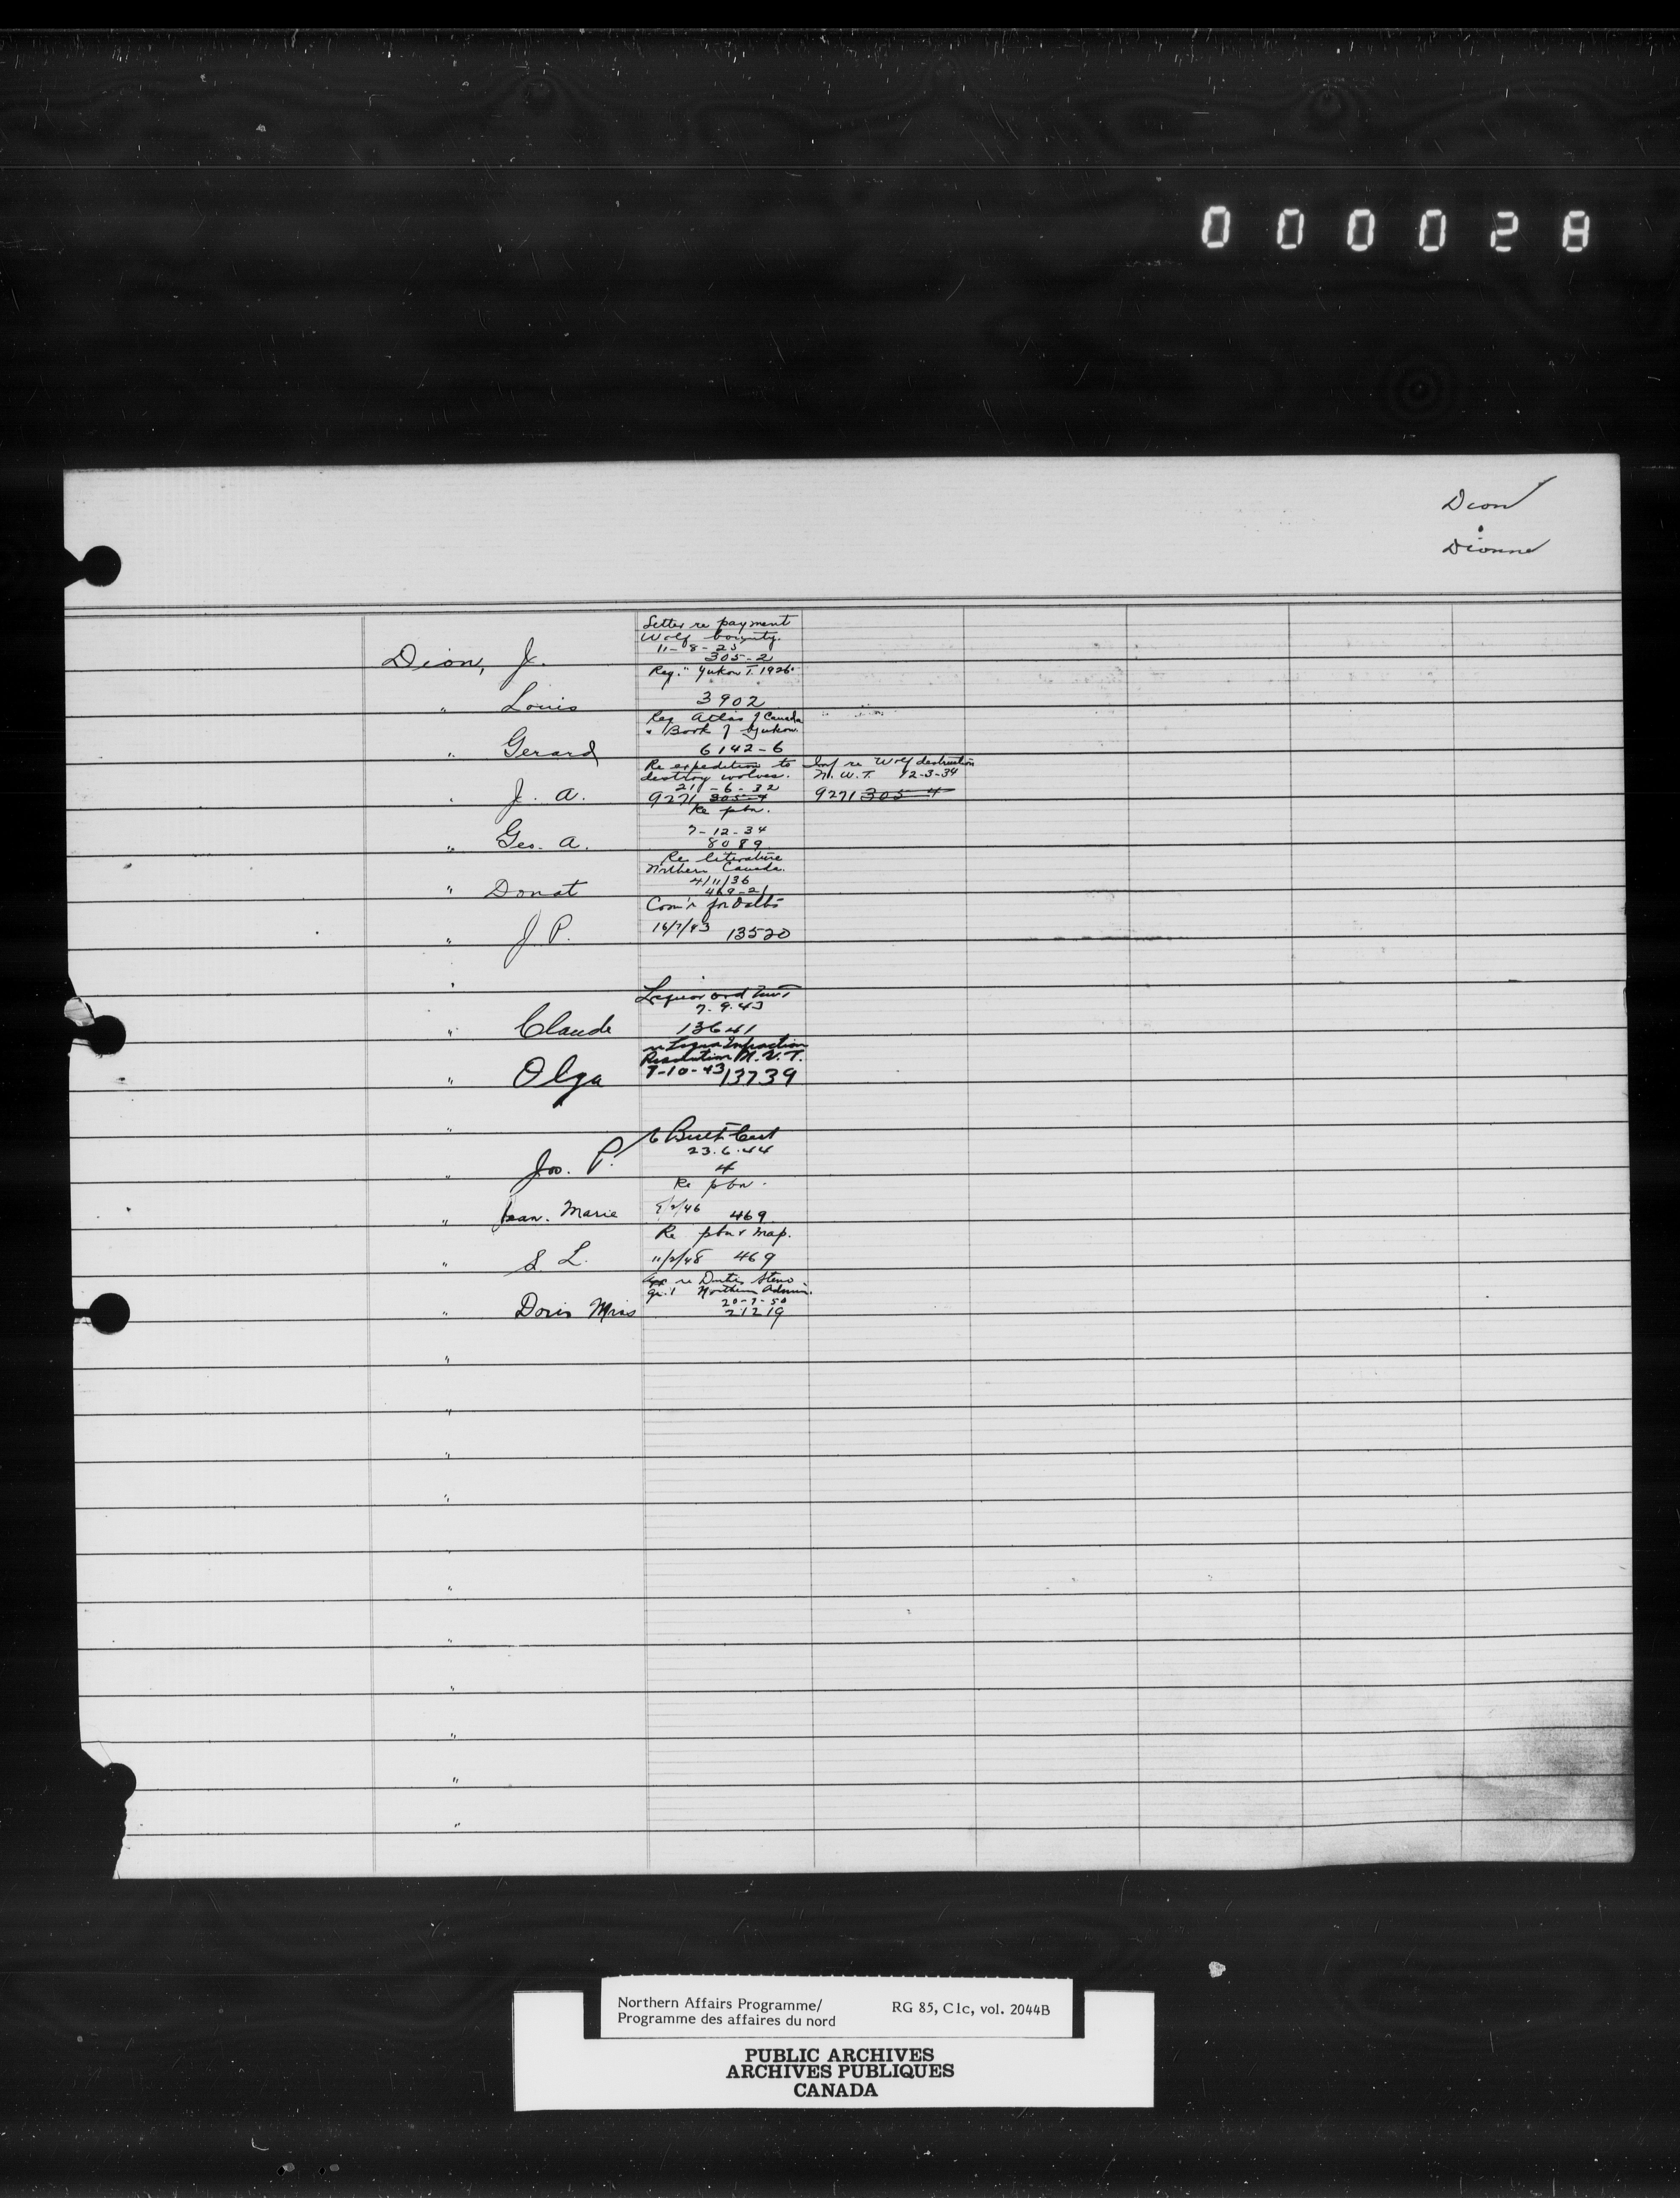 000028
Dion
Dionne
Letter re payment
Wolf bounty.
11-8-25
Dion, J. 305-2
Req. " Yukon T. 1926"
" Louis 3902
Req Atlas of Canada
& Book of Yukon.
" Gerard 6142-6
Re expedition to Inf re Wolf destruction
destroy wolves. N. W. T. 12-3-34
21-6-32
" J. A. 9271 305-4 9271 305-4
Re pbn.
7-12-34
" Geo. A. 8089
Re literature
Northern Canada.
4/11/36
" Donat 469-21
Com'r for Oaths
" J. P. 16/7/43 13520
"
Liquor ord NWT
7.9.43
" Claude 13641
re Liquor Infraction
N.W.T.
" Olga 7-10-43 13739
"
Birth Cert
23.6.44
" Jos. P. 4
Re pbn.
" Jean. Marie /46 469
Re pbn & map.
" S. L. 11/2/48 469
App re Duties Steno
gr. 1 Northern Admin.
20-7-50
" Doris Miss 21219
"
"
"
"
"
"
"
"
"
"
"
Northern Affairs Programme/ RG 85, C1c, vol. 2044B
Programme des affaires du nord
PUBLIC ARCHIVES
ARCHIVES PUBLIQUES
CANADA